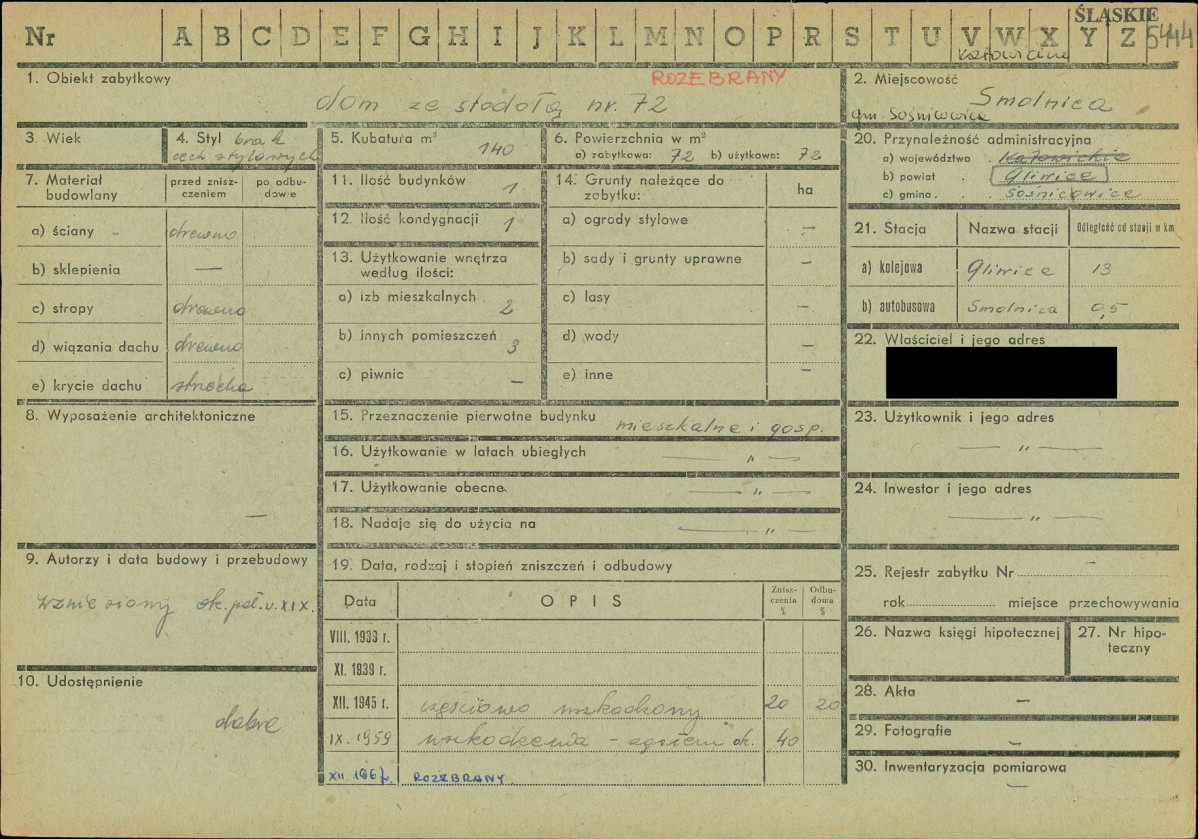 ŚLĄSKIE
Nr A B C D E F G H I J K L M N O P R S T U V W X Y Z 5444
katowickie
1. Obiekt zabytkowy
ROZEBRANY
dom ze stodołą nr. 72
2. Miejscowość
Smolnica
gm. Sośnicowice
3. Wiek
4. Styl brak
cech stylowych
5. Kubatura m³
140
6. Powierzchnia w m²
a) zabytkowa: 72 b) użytkowa: 72
20. Przynależność administracyjna
a) województwo katowickie
b) powiat Gliwice
c) gmina Sośnicowice
7. Materiał budowlany
przed zniszczeniem
po odbudowie
a) ściany - drewno
b) sklepienia —
c) stropy drewno
d) wiązania dachu drewno
e) krycie dachu strzecha
11. Ilość budynków 1
12. Ilość kondygnacji 1
13. Użytkowanie wnętrza
według ilości:
a) izb mieszkalnych 2
b) innych pomieszczeń 3
c) piwnic –
14. Grunty należące do
zabytku:
ha
a) ogrody stylowe –
b) sady i grunty uprawne –
c) lasy –
d) wody –
e) inne –
21. Stacja Nazwa stacji Odległość od stacji w km
a) kolejowa Gliwice 13
b) autobusowa Smolnica 0,5
22. Właściciel i jego adres
8. Wyposażenie architektoniczne
—
15. Przeznaczenie pierwotne budynku
mieszkalne i gosp.
16. Użytkowanie w latach ubiegłych — " —
17. Użytkowanie obecne — " —
18. Nadaje się do użycia na — " —
23. Użytkownik i jego adres
— " —
24. Inwestor i jego adres
— " —
9. Autorzy i data budowy i przebudowy
wzniesiony ok. poł. w. XIX.
19. Data, rodzaj i stopień zniszczeń i odbudowy
Data OPIS Zniszczenia % Odbudowa %
VIII. 1939 r.
XI. 1939 r.
XII. 1945 r. częściowo uszkodzony 20 20
IX. 1959 uszkodzenia – ogółem ok. 40
XII. 1967. ROZEBRANY.
25. Rejestr zabytku Nr –
rok miejsce przechowywania
26. Nazwa księgi hipotecznej
27. Nr hipoteczny
10. Udostępnienie
dobre
28. Akta –
29. Fotografie –
30. Inwentaryzacja pomiarowa –